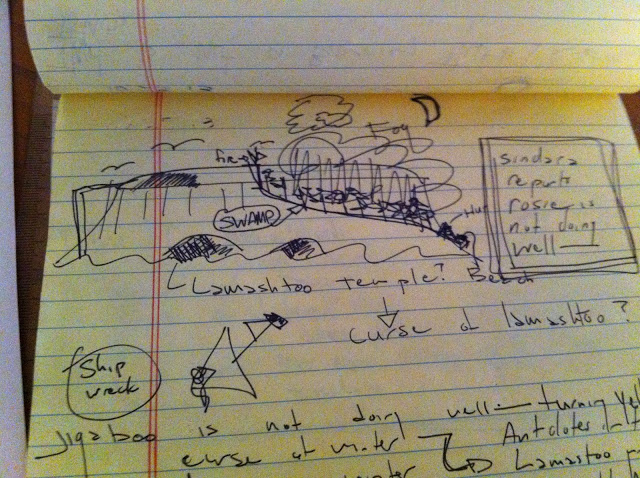 Fog
fire
SWAMP
Hut
sindara
reports
rosie is
not doing
well
Lamashtoo temple? Beach
curse of lamashtoo?
ship
wreck
jigaboo is not doing well – turning
curse at water Antidotes
Lamastoo